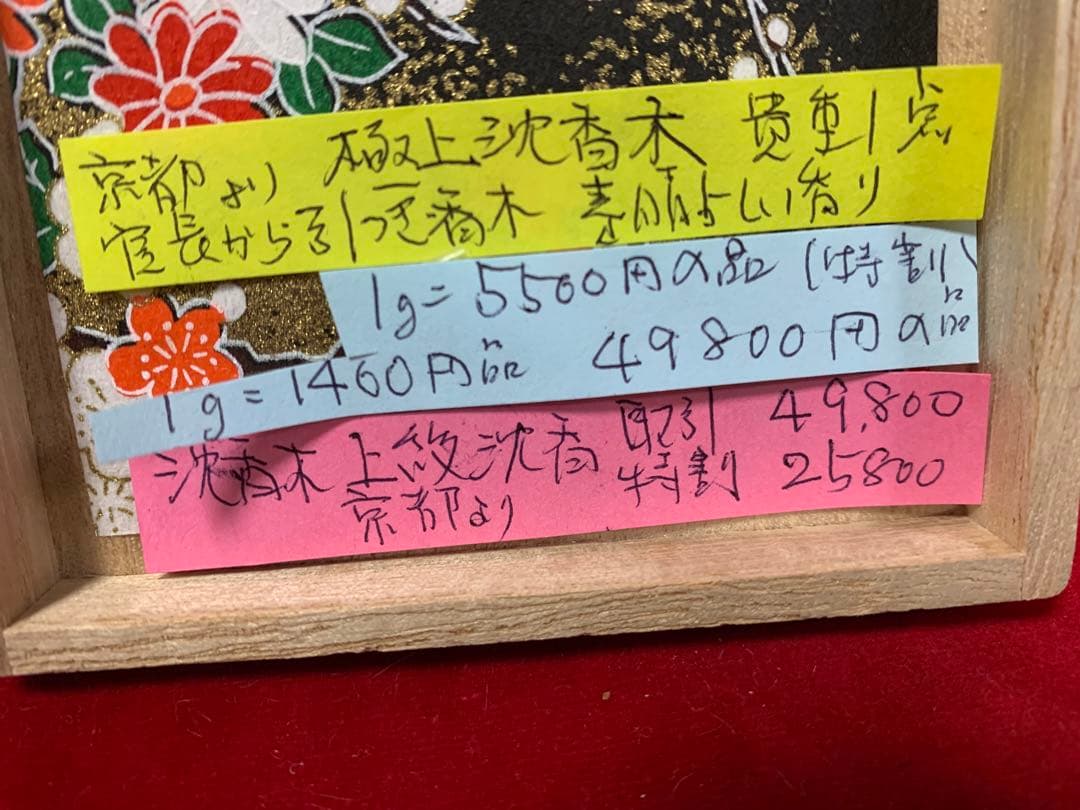 京都より 極上沈香木 貴重1点
官長から引つぎ香木 素晴らしい香り
1g=5500円の品(特割)
1g=1460円品 49800円の品
沈香木 上級沈香 取引 49,800
京都より 特割 25800